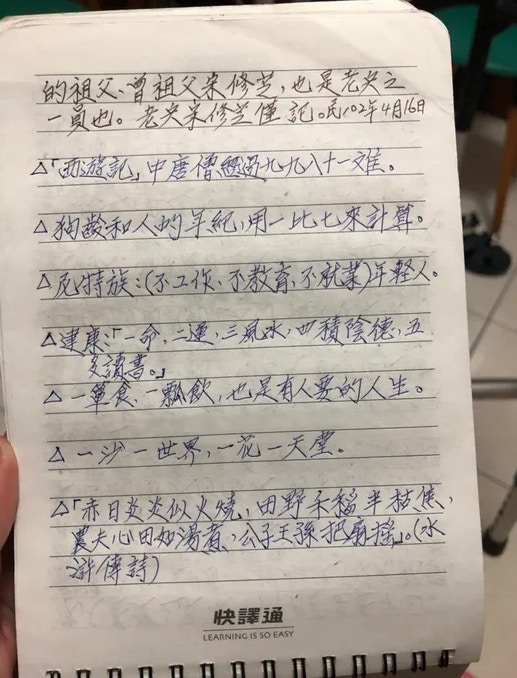 的祖父、曾祖父宋修芝，也是老夫之
一員也。老夫宋修芝僅記。民102年4月16日
△「西遊記」中唐僧經過九九八十一难。
△狗齡和人的年紀，用一比七來計算。
△尼特族：(不工作、不教育、不就業)年輕人。
△建康：「一命，二運，三風水，四積陰德，五
多讀書。」
△一簞食、一瓢飲，也是有人要的人生。
△一沙一世界，一花一天堂。
△「赤日炎炎似火燒，田野禾稻半枯焦，
農夫心田如湯煮，公子王孫把扇搖」。(水
滸傳詩)
快譯通
LEARNING IS SO EASY